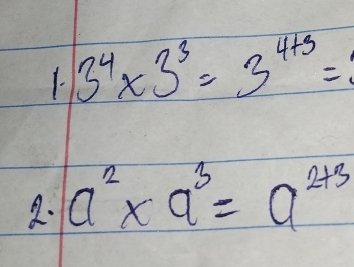 1. 3⁴ × 3³ = 3⁴⁺³ =
2. a² × a³ = a²⁺³